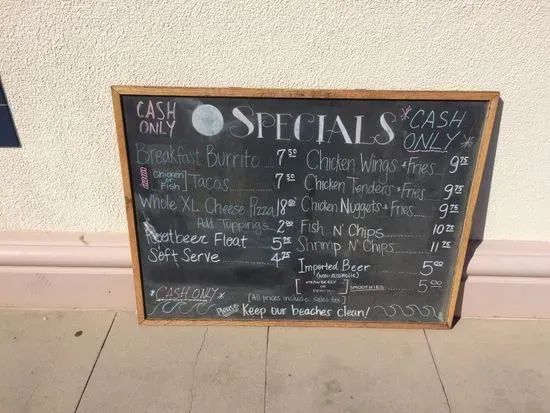 CASH ONLY
SPECIALS
*CASH ONLY*
Breakfast Burrito 7 50
chicken or Fish Tacos 7 50
Whole XL Cheese Pizza 18 00
Add Toppings 2 00
Rootbeer Float 5 25
Soft Serve 4 75
Chicken Wings + Fries 9 75
Chicken Tenders + Fries 9 75
Chicken Nuggets + Fries 9 75
Fish N' Chips 10 75
Shrimp N' Chips 11 75
Imported Beer 5 00
(NON-ALCOHOLIC)
[STRAWBERRY OR PEACH] SMOOTHIES 5 00
*CASH ONLY*
[All prices include sales tax]
Please Keep our beaches clean!